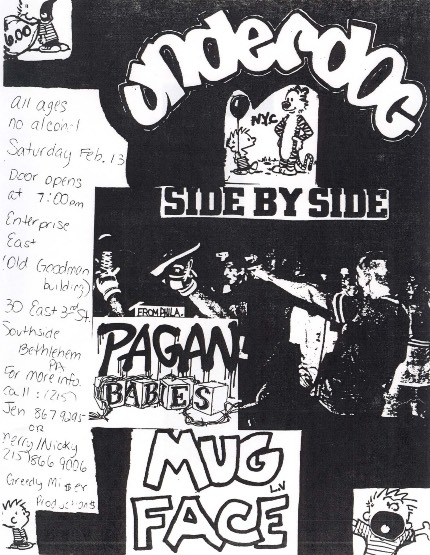 6.00
underdog
N.Y.C.
SIDE BY SIDE
All ages
no alcohol
Saturday Feb. 13
Door opens
at 7:00pm
Enterprise
East
(Old Goodman
building)
30 East 3rd St.
Southside
Bethlehem
PA
For more info.
call: (215)
Jen 867 9295
OR
Merry/Nicky
215 866 9006
Greedy Miser
Productions
FROM PHILA.
PAGAN
BABIES
MUG
FACE
L.V